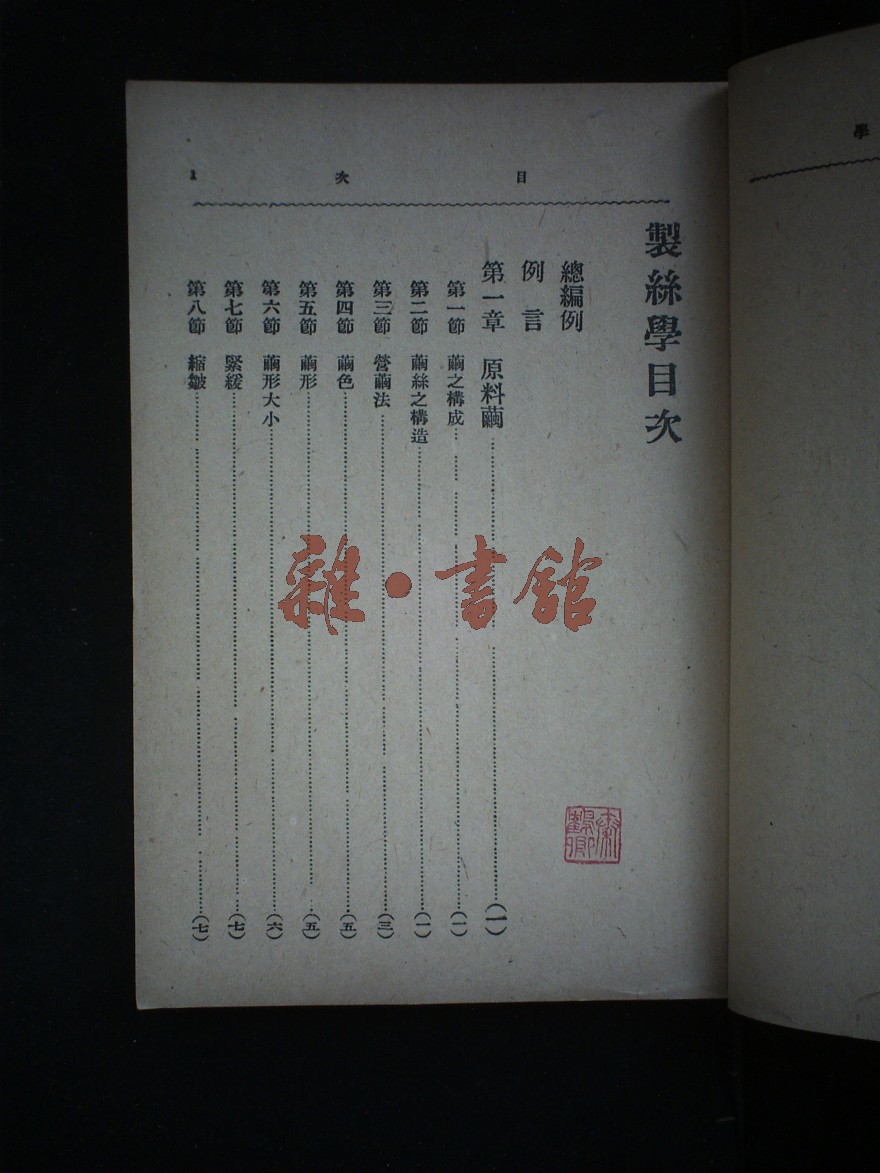 目次 1
製絲學目次
總編例
例言
第一章 原料繭……(一)
第一節 繭之構成……(一)
第二節 繭絲之構造……(一)
第三節 營繭法……(三)
第四節 繭色……(五)
第五節 繭形……(五)
第六節 繭形大小……(六)
第七節 緊緩……(七)
第八節 縮皺……(七)
雜·書館
學